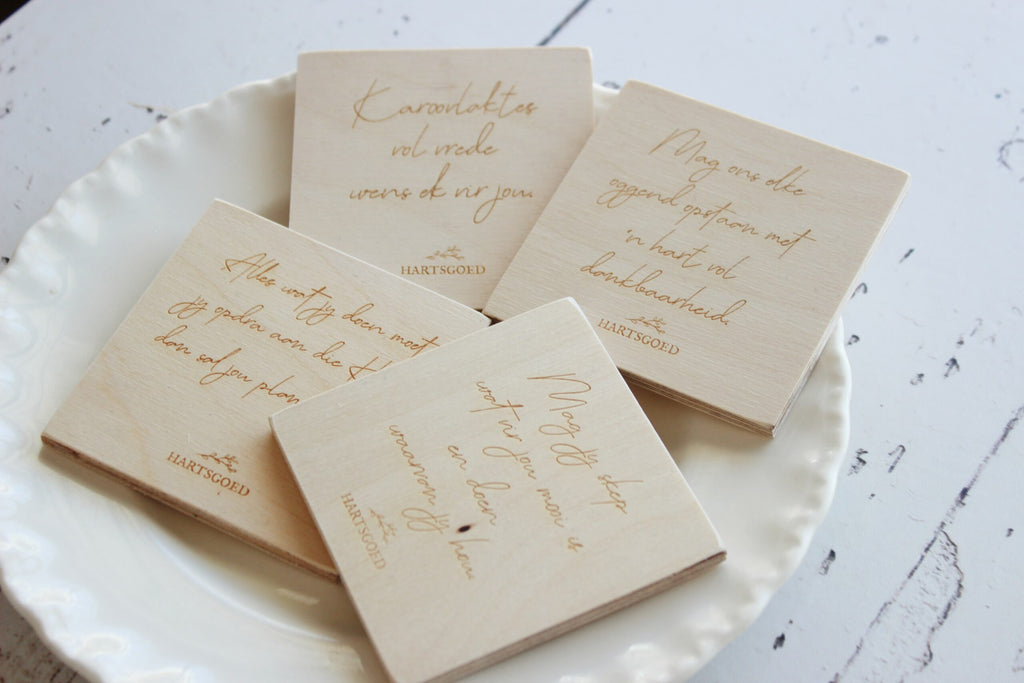 Karoovlaktes
vol vrede
wens ek vir jou.
HARTSGOED
Mag ons elke
oggend opstaan met
'n hart vol
dankbaarheid.
HARTSGOED
Alles wat jy doen moet
jy opdra aan die
dan sal jou
HARTSGOED
Mag jy skep
wat vir jou mooi is
en doen
waarvan jy hou.
HARTSGOED